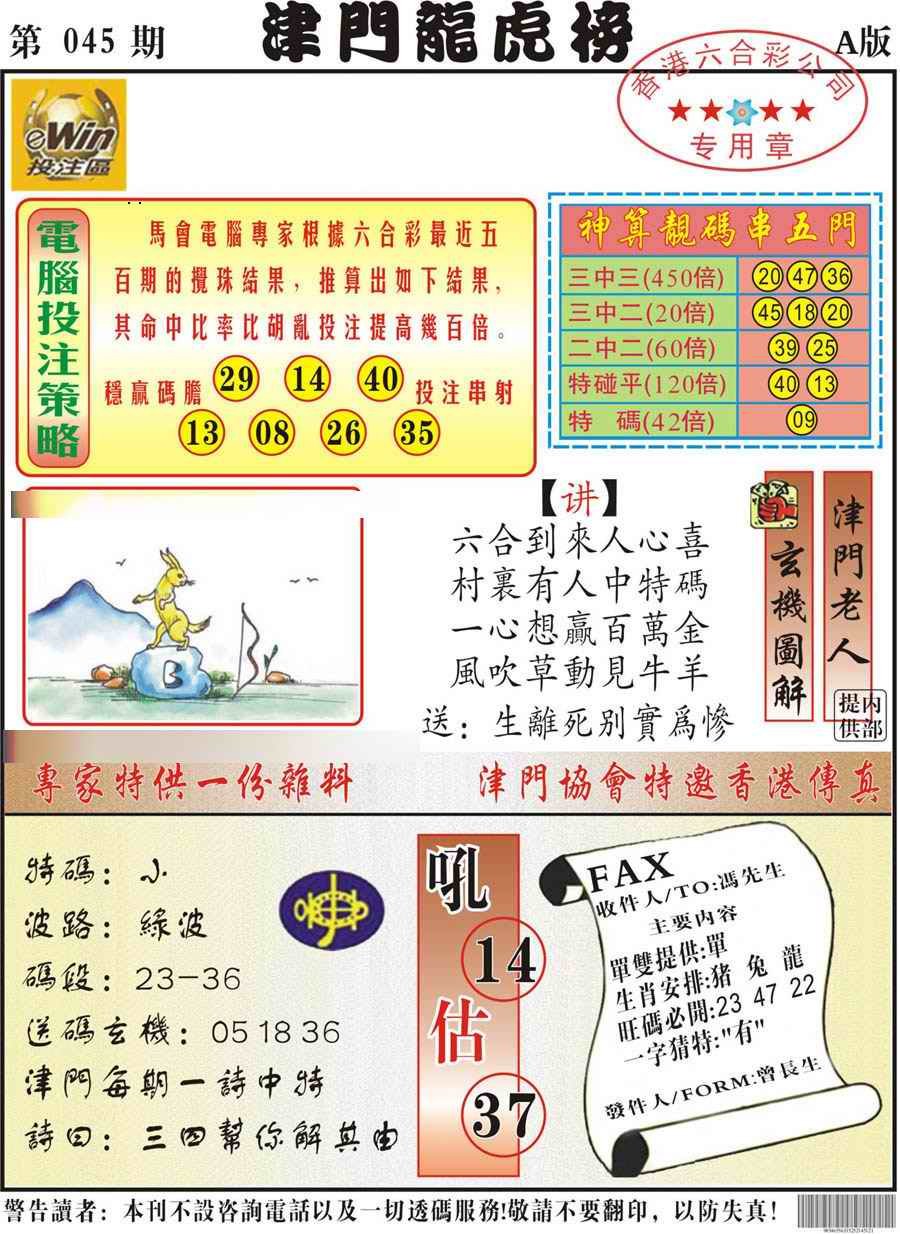 第 045 期
津門龍虎榜
A版
香港六合彩公司
专用章
eWin
投注區
電腦投注策略
馬會電腦專家根據六合彩最近五
百期的攪珠結果，推算出如下結果，
其命中比率比胡亂投注提高幾百倍。
穩贏碼膽 29 14 40 投注串射
13 08 26 35
神算靚碼串五門
三中三(450倍) 20 47 36
三中二(20倍) 45 18 20
二中二(60倍) 39 25
特碰平(120倍) 40 13
特 碼(42倍) 09
B
【讲】
六合到來人心喜
村裏有人中特碼
一心想贏百萬金
風吹草動見牛羊
送：生離死别實爲慘
玄機圖解
津門老人
内部
提供
專家特供一份雜料
津門協會特邀香港傳真
特碼：小
波路：綠波
碼段：23-36
送碼玄機：05 18 36
津門每期一詩中特
詩曰：三四幫你解其由
吼
14
估
37
FAX
收件人/TO:馮先生
主要内容
單雙提供:單
生肖安排:猪 兔 龍
旺碼必開:23 47 22
一字猜特:"有"
發件人/FORM:曾長生
警告讀者：本刊不設咨詢電話以及一切透碼服務!敬請不要翻印，以防失真！